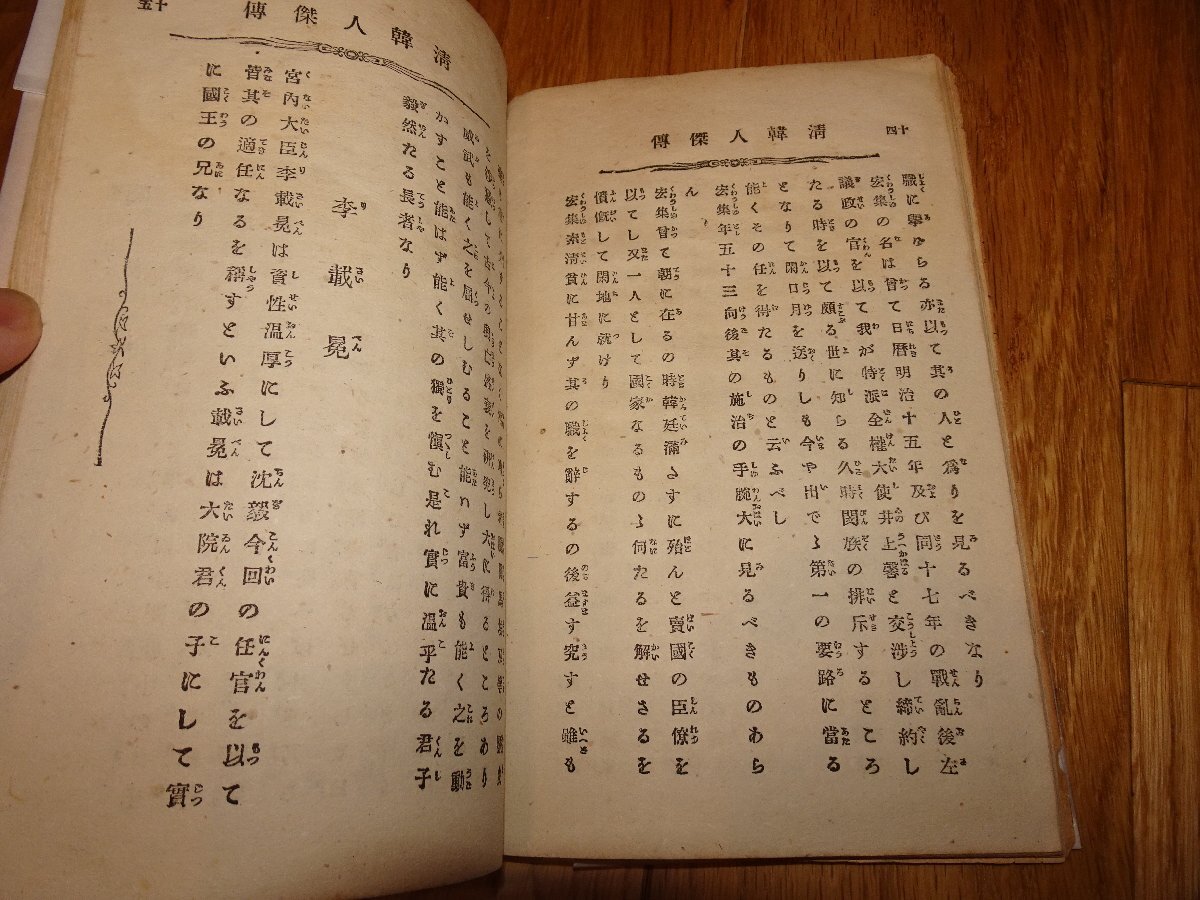 十四
清韓人傑傳
職に擧げらる亦以て其の人と爲りを見るべきなり
宏集の名は曾て日曆明治十五年及び同十七年の戰亂後左
議政の官を以て我が特派全權大使井上馨と交渉し締約し
たる時を以て頗る世に知らる久時閔族の排斥するところ
となりて閑日月を送りしも今や出でゝ第一の要路に當る
能くその任を得たるものと云ふべし
宏集年五十三向後其の施治の手腕大に見るべきものあら
ん
宏集曾て朝に在るの時韓廷滿さすに殆んと賣國の臣僚を
以てし又一人として國家なるものゝ何たるを解せさるを
憤慨して閑地に就けり
宏集素清貧に甘んず其の職を辭するの後益す究すと雖も
十五
清韓人傑傳
威武も能く之を屈せしむること能いず富貴も能く之を動
かすこと能はず能く其の獨を愼む是れ實に溫乎たる君子
毅然たる長者なり
李載冕
宮內大臣李載冕は資性溫厚にして沈毅今回の任官を以て
皆其の適任なるを稱すといふ載冕は大院君の子にして實
に國王の兄なり